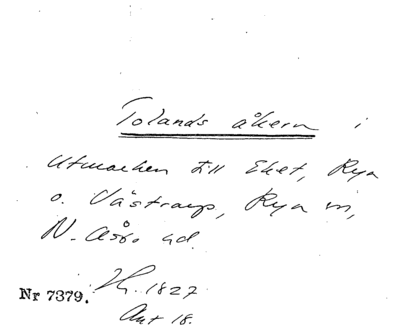 Tolands åkern i
Utmarken till Eket, Rya
o. Västraup, Rya sn,
N. Åsbo hd.
Nr 7379. Jh. 1827
Akt 18.